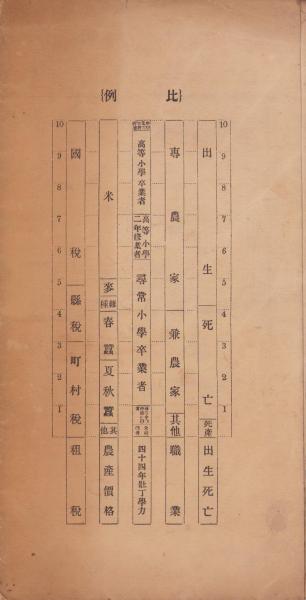 比例
10
9
8
7
6
5
4
3
2
1
出生
死亡
死産
出生死亡
專農家
兼農家
其他
職業
高等小學卒業者
高等小學二年修業者
尋常小學卒業者
四十四年壯丁學力
米
麥
雜種
春蠶
夏秋蠶
其他
農產價格
國稅
縣稅
町村稅
租稅
10
9
8
7
6
5
4
3
2
1